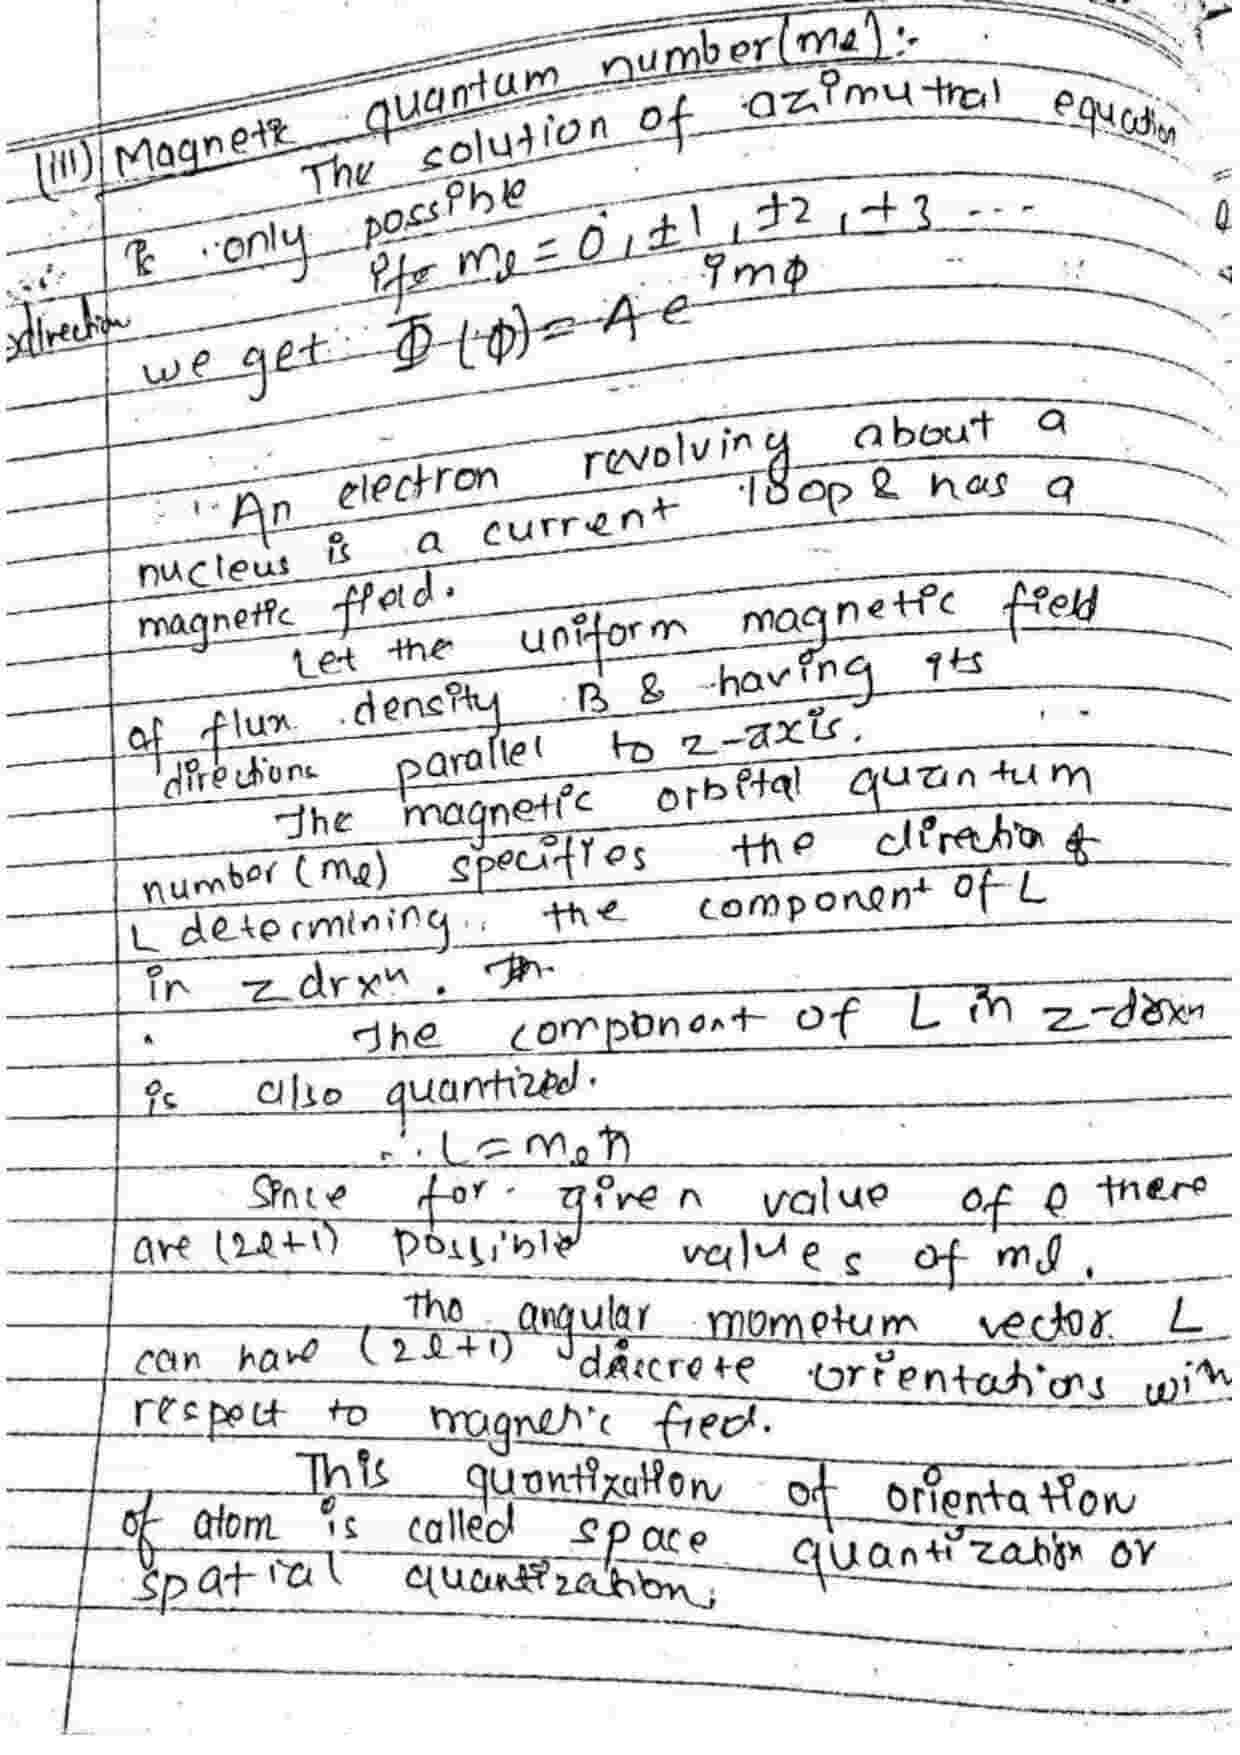 (iii) Magnetic quantum number(mℓ):-
The solution of azimuthal equation
is only possible
if mℓ = 0, ±1, ±2, +3 ---
direction
we get Φ(ϕ) = A e^imϕ
An electron revolving about a
nucleus is a current loop & has a
magnetic field.
Let the uniform magnetic field
of flux density B & having its
directions parallel to z-axis.
The magnetic orbital quantum
number (mℓ) specifies the direction of
L determining the component of L
in z drxn.
The component of L in z-dirxn
is also quantized.
∴ L = mℓ ħ
Since for given value of ℓ there
are (2ℓ+1) possible values of mℓ.
The angular mometum vector L
can have (2ℓ+1) discrete orientations with
respect to magnetic fied.
This quantization of orientation
of atom is called space quantization or
spatial quantization.